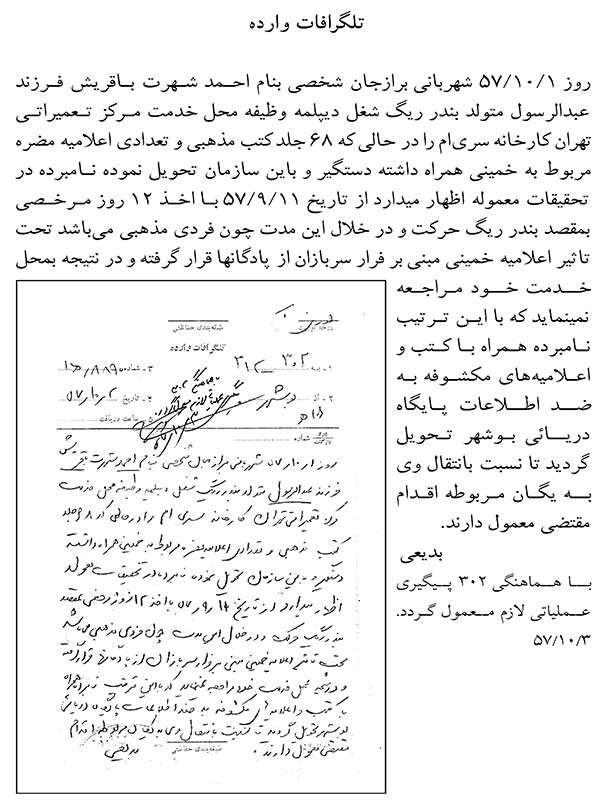 تلگرافات وارده
روز ۵۷/۱۰/۱ شهربانی برازجان شخصی بنام احمد شهرت باقریش فرزند
عبدالرسول متولد بندر ریگ شغل دیپلمه وظیفه محل خدمت مرکز تعمیراتی
تهران کارخانه سری‌ام را در حالی که ۶۸ جلد کتب مذهبی و تعدادی اعلامیه مضره
مربوط به خمینی همراه داشته دستگیر و باین سازمان تحویل نموده نامبرده در
تحقیقات معموله اظهار میدارد از تاریخ ۵۷/۹/۱۱ با اخذ ۱۲ روز مرخصی
بمقصد بندر ریگ حرکت و در خلال این مدت چون فردی مذهبی می‌باشد تحت
تاثیر اعلامیه خمینی مبنی بر فرار سربازان از پادگانها قرار گرفته و در نتیجه بمحل
خدمت خود مراجعه
نمینماید که با این ترتیب
نامبرده همراه با کتب و
اعلامیه‌های مکشوفه به
ضد اطلاعات پایگاه
دریائی بوشهر تحویل
گردید تا نسبت بانتقال وی
به یگان مربوطه اقدام
مقتضی معمول دارند.
بدیعی
با هماهنگی ۳۰۲ پیگیری
عملیاتی لازم معمول گردد.
۵۷/۱۰/۳
طبقه بندی حفاظتی
تلگرافات وارده
۳۰۲ ۳۱۲
روز ۵۷/۱۰/۱ شهربانی برازجان شخصی بنام احمد شهرت باقریش
فرزند عبدالرسول متولد بندر ریگ شغل دیپلمه وظیفه محل خدمت
مرکز تعمیراتی تهران کارخانه سری ام را در حالی که ۶۸ جلد
کتب مذهبی و تعدادی اعلامیه مضره مربوط به خمینی همراه داشته
دستگیر و باین سازمان تحویل نموده نامبرده در تحقیقات معموله
اظهار میدارد از تاریخ ۵۷/۹/۱۱ با اخذ ۱۲ روز مرخصی بمقصد
بندر ریگ حرکت و در خلال این مدت چون فردی مذهبی می باشد
تحت تاثیر اعلامیه خمینی مبنی بر فرار سربازان از پادگانها قرار گرفته
و در نتیجه بمحل خدمت خود مراجعه نمینماید که با این ترتیب نامبرده همراه
با کتب و اعلامیه های مکشوفه به ضد اطلاعات پایگاه دریائی
بوشهر تحویل گردید تا نسبت بانتقال وی به یگان مربوطه اقدام
مقتضی معمول دارند.
بدیعی
طبقه بندی حفاظتی